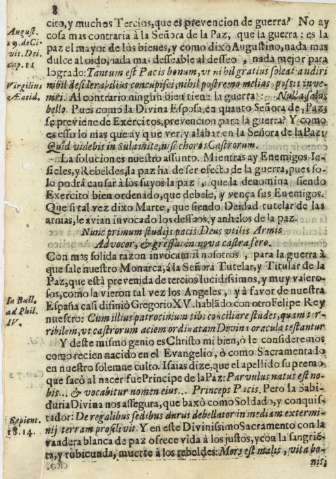 8
cito, y muchos Tercios, que es prevencion de guerra? No ay
cosa mas contraria à la Señora de la Paz, que la guerra: es la
paz el mayor de los bienes, y como dixo Augustino, nada mas
dulce al oido, nada mas deseable al deseo, nada mejor para
logrado: Tantum est Pacis bonum, ut nihil gratius soleat audiri
nihil desiderabilius concupisci, nihil postremo melius possit inve-
niri. Al contrario ningun bien tiene la guerra: Nulla salus
bello. Pues como la Divina Esposa, en quanto Señora de Paz
se previene de Exercitos, prevencion para la guerra? Y como
es esso lo mas que ay que ver, y alabar en la Señora de la Paz;
Quid videbis in Sulamite, nisi choros Castrorum.
La solucion es nuestro assunto. Mientras ay Enemigos In-
fieles, y Rebeldes, la paz ha de ser efecto de la guerra, pues so-
lo podrà causar à los suyos la paz, que la denomina siendo
Exercito bien ordenado, que debele, y vença sus Enemigos.
Que si tal vez dixo Marte, que siendo Deidad tutelar de las
armas, le avian invocado los desseos, y anhelos de la paz.
Nunc primum studijs pacis Deus utilis Armis
Advocor, & gressus in nova castra fero.
Con mas solida razon invocamos nosotros, para la guerra à
que sale nuestro Monarca, à la Señora Tutelar, y Titular de la
Paz, que està prevenida de tercios lucidissimos, y muy valero-
sos, como la vieron tal vez los Angeles, y à favor de nuestra
España casi difiniò Gregorio XV. hablãdo con otro Felipe Rey
nuestro: Cum illius patrocinium tibi conciliare studes, quam ter-
ribilem, ut castrorum aciem ordinatam Divina oracula testantur
Y deste mismo genio es Christo mi bien, ò le consideremos
como recien nacido en el Evangelio, ò como Sacramentado
en nuestro solemne culto. Isaias dize, que el apellido supremo
que sacò al nacer fue Principe de la Paz: Parvulus natus est no-
bis... & vocabitur nomen eius... Princeps Pacis. Pero la Sabi-
duria Divina nos assegura, que baxò como Soldado, y conquis-
tador: De regalibus sedibus durus debellator in mediam extermi-
nij terram prosilivit. Y en este Divinissimo Sacramento con la
vandera blanca de paz ofrece vida à los justos, y con la sangrie-
ta, y rubicunda, muerte à los rebeldes: Mors est malis, vita bo-
nis,
August.
19. de Ci-
vit. Dei.
cap. 11
Virgilius
Æneid.
In Bull.
ad Phil.
IV.
Sapient.
18.14.